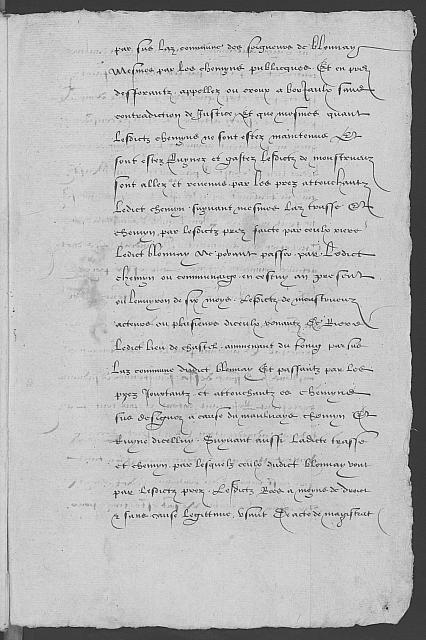 par sus laz commune des seigneurs de blonnay
Mesmes par les chemyns publicques Et en prez
desserantz appellez ou creux a borjaulx sans
contradiction de Justice Et que mesmes quant
Lesdictz chemyns ne sont estez maintenus Et
sont estez Ruynez et gastez Lesdictz de monstrueux
sont allez et revenus par les prez attouchantz
Ledict chemyn suyvant mesmes laz trasse Et
chemyn par lesdictz prez faicte par ceulx
Ledict blonnay Ne povant passer par Ledict
chemyn ou commenarge en cestuy an present
ou lenviron de six moys Lesdictz de monstrueux
acteurs ou plusieurs diceulx venantz De
Ledict lieu de chastel ammenant du foing par sus
Laz commune dudict blonnay Et passantz par les
prez Jouxtantz et attouchantz es chemyns
sus designez a cause du maulvays chemyn Et
Ruyne dicelluy Suyvant aussi Ladicte trasse
et chemyn par lesquelz ceulx dudict blonnay vont
par lesdictz prez Lesdictz Rees a moyns de droict
& sans cause legittime usant De acte de magistrat